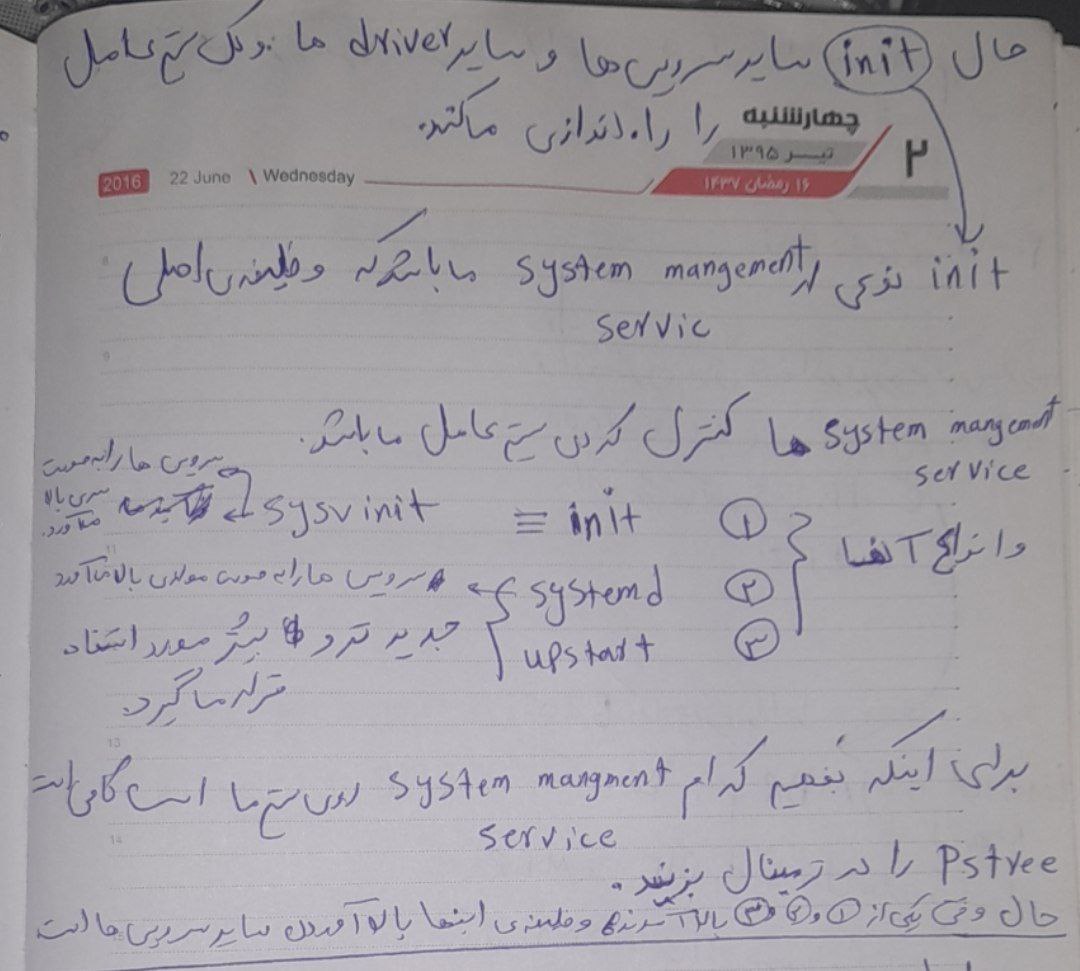 حال init سایر سرویس ها و سایر driver ها و کل سیستم عامل
را راه اندازی میکند.
چهارشنبه
۲
تیـــر ۱۳۹۵
۱۶ رمضان ۱۴۳۷
2016 22 June \ Wednesday
init نوعی از system mangement میباشد که وظیفه ی اصلی
servic
system mangemant ها کنترل کردن سیستم عامل میباشد.
service
و انواع آنها
① init ≡ sysvinit سرویس ها را به صورت
سری بالا
میآورد.
② systemd سرویس ها را به صورت موازی بالا میآورد
③ upstart جدید تر و بیشتر مورد استفاده
قرار میگیرد.
برای اینکه بفهمیم کدام system mangment روی سیستم ما است کافی است
service
Pstree را در ترمینال بزنید.
حال وقتی یکی از ① و ② و ③ بالا آمدند وظیفه ی اینها بالا آوردن سایر سرویس ها است